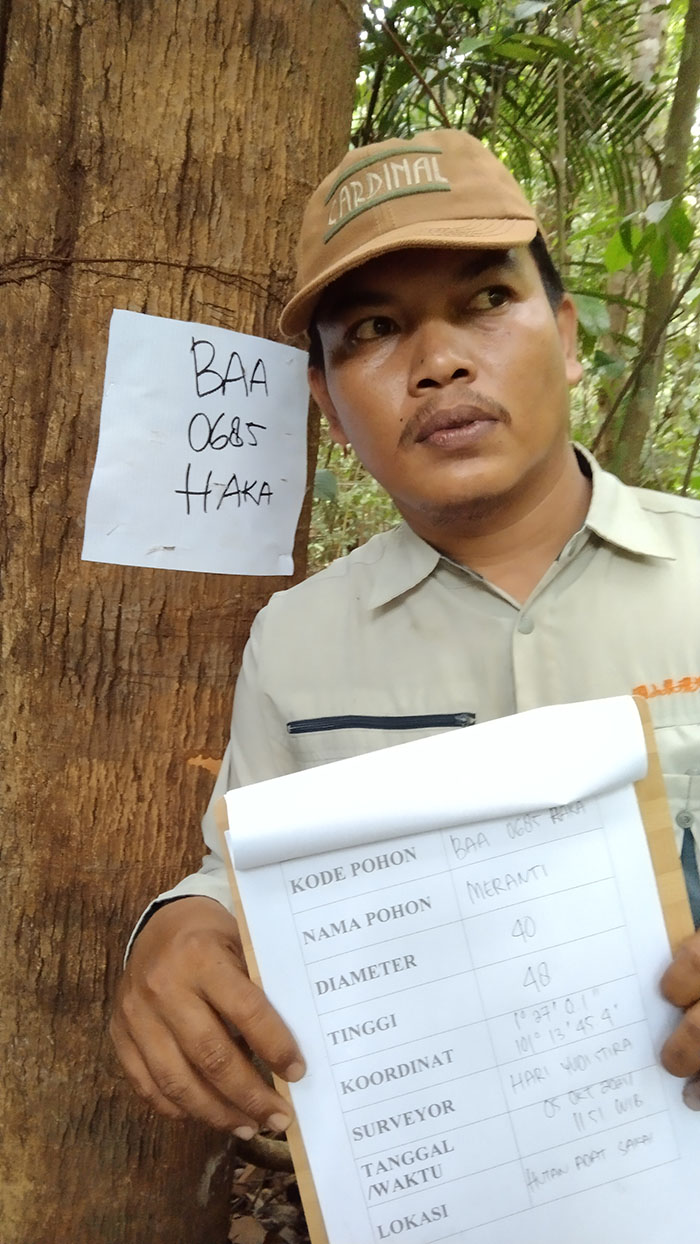 CARDINAL
BAA
0685
HAKA
KODE POHON BAA 0685 HAKA
NAMA POHON MERANTI
DIAMETER 40
TINGGI 48
KOORDINAT 1° 27' 0.1"
101° 13' 45.4"
SURVEYOR HARI YUDISTIRA
TANGGAL 05 OKT 2021
/WAKTU 1151 WIB
LOKASI HUTAN ADAT SAKAI